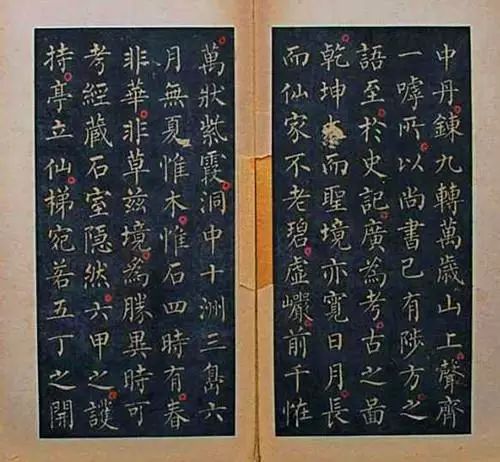 中丹鍊九轉萬歳山上聲齊
一嘑所以尚書已有陟方之
語至於史記廣為考古之圖
乾坤而聖境亦寬日月長
而仙家不老碧虛巗前千恠
萬狀紫霞洞中十洲三島六
月無夏惟木惟石四時有春
非華非草茲境為勝異時可
考經藏石室隠然六甲之護
持亭立仙梯宛若五丁之開